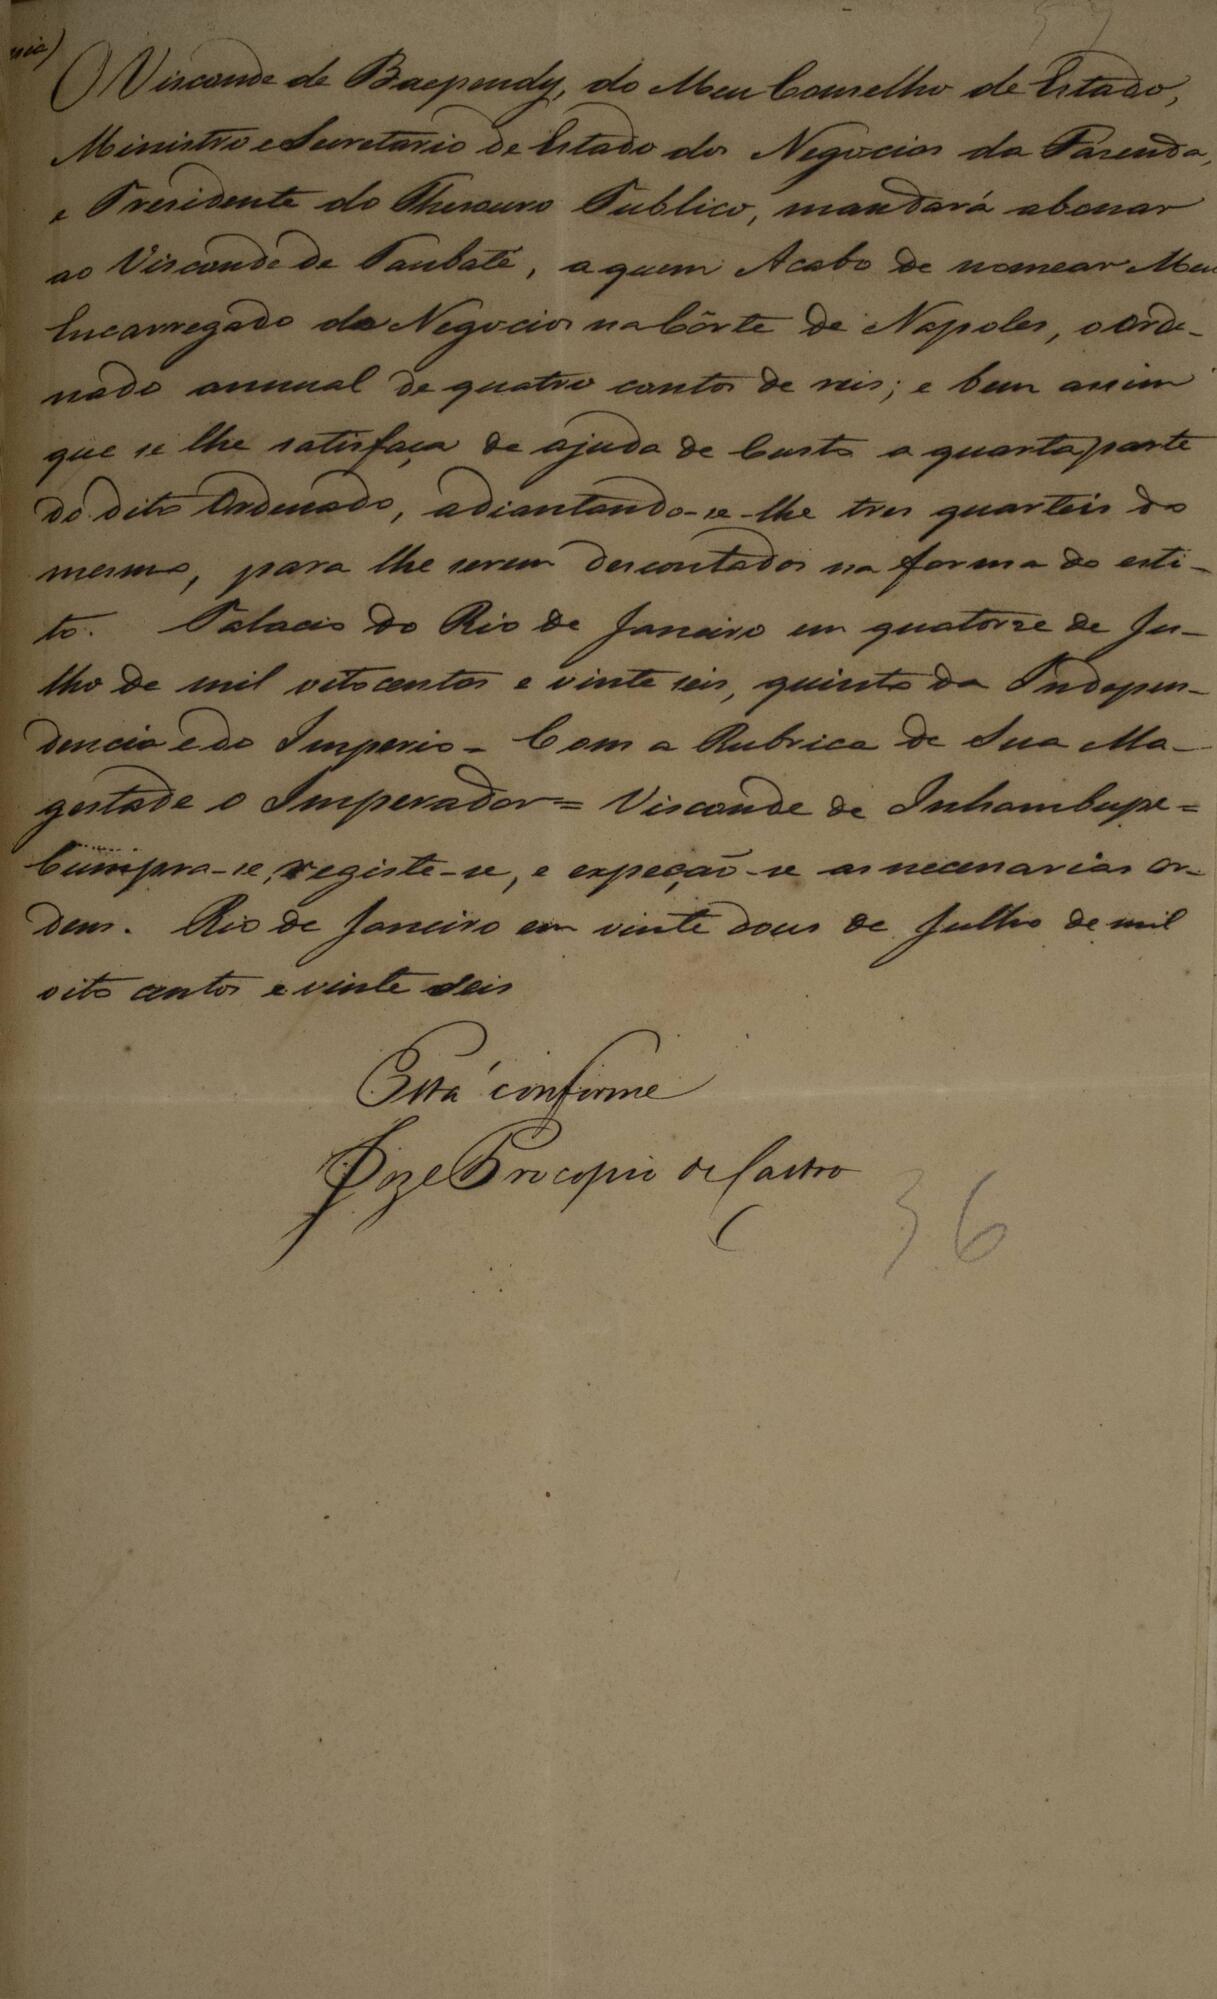 O Visconde de Baependy, do Meu Conselho de Estado,
Ministro e Secretario de Estado dos Negocios da Fazenda,
e Presidente do Thesouro Publico, mandará abonar
ao Visconde de Taubaté, a quem Acabo de nomear Meu
Encarregado de Negocios na Côrte de Napoles, o Orde-
nado annual de quatro contos de reis; e bem assim
que se lhe satisfaça de ajuda de Custo a quarta parte
do dito Ordenado, adiantando-se-lhe tres quarteis do
mesmo, para lhe serem descontados na forma do esti-
lo. Palacio do Rio de Janeiro em quatorze de Ju-
lho de mil oitocentos e vinte seis, quinto da Indepen-
dencia e do Imperio - Com a Rubrica de Sua Ma-
gestade o Imperador = Visconde de Inhambupe =
Cumpra-se, registe-se, e expeção-se as necessarias or-
dens. Rio de Janeiro em vinte dous de Julho de mil
oito centos e vinte seis
Está conforme
Joze Procopio de Castro
36